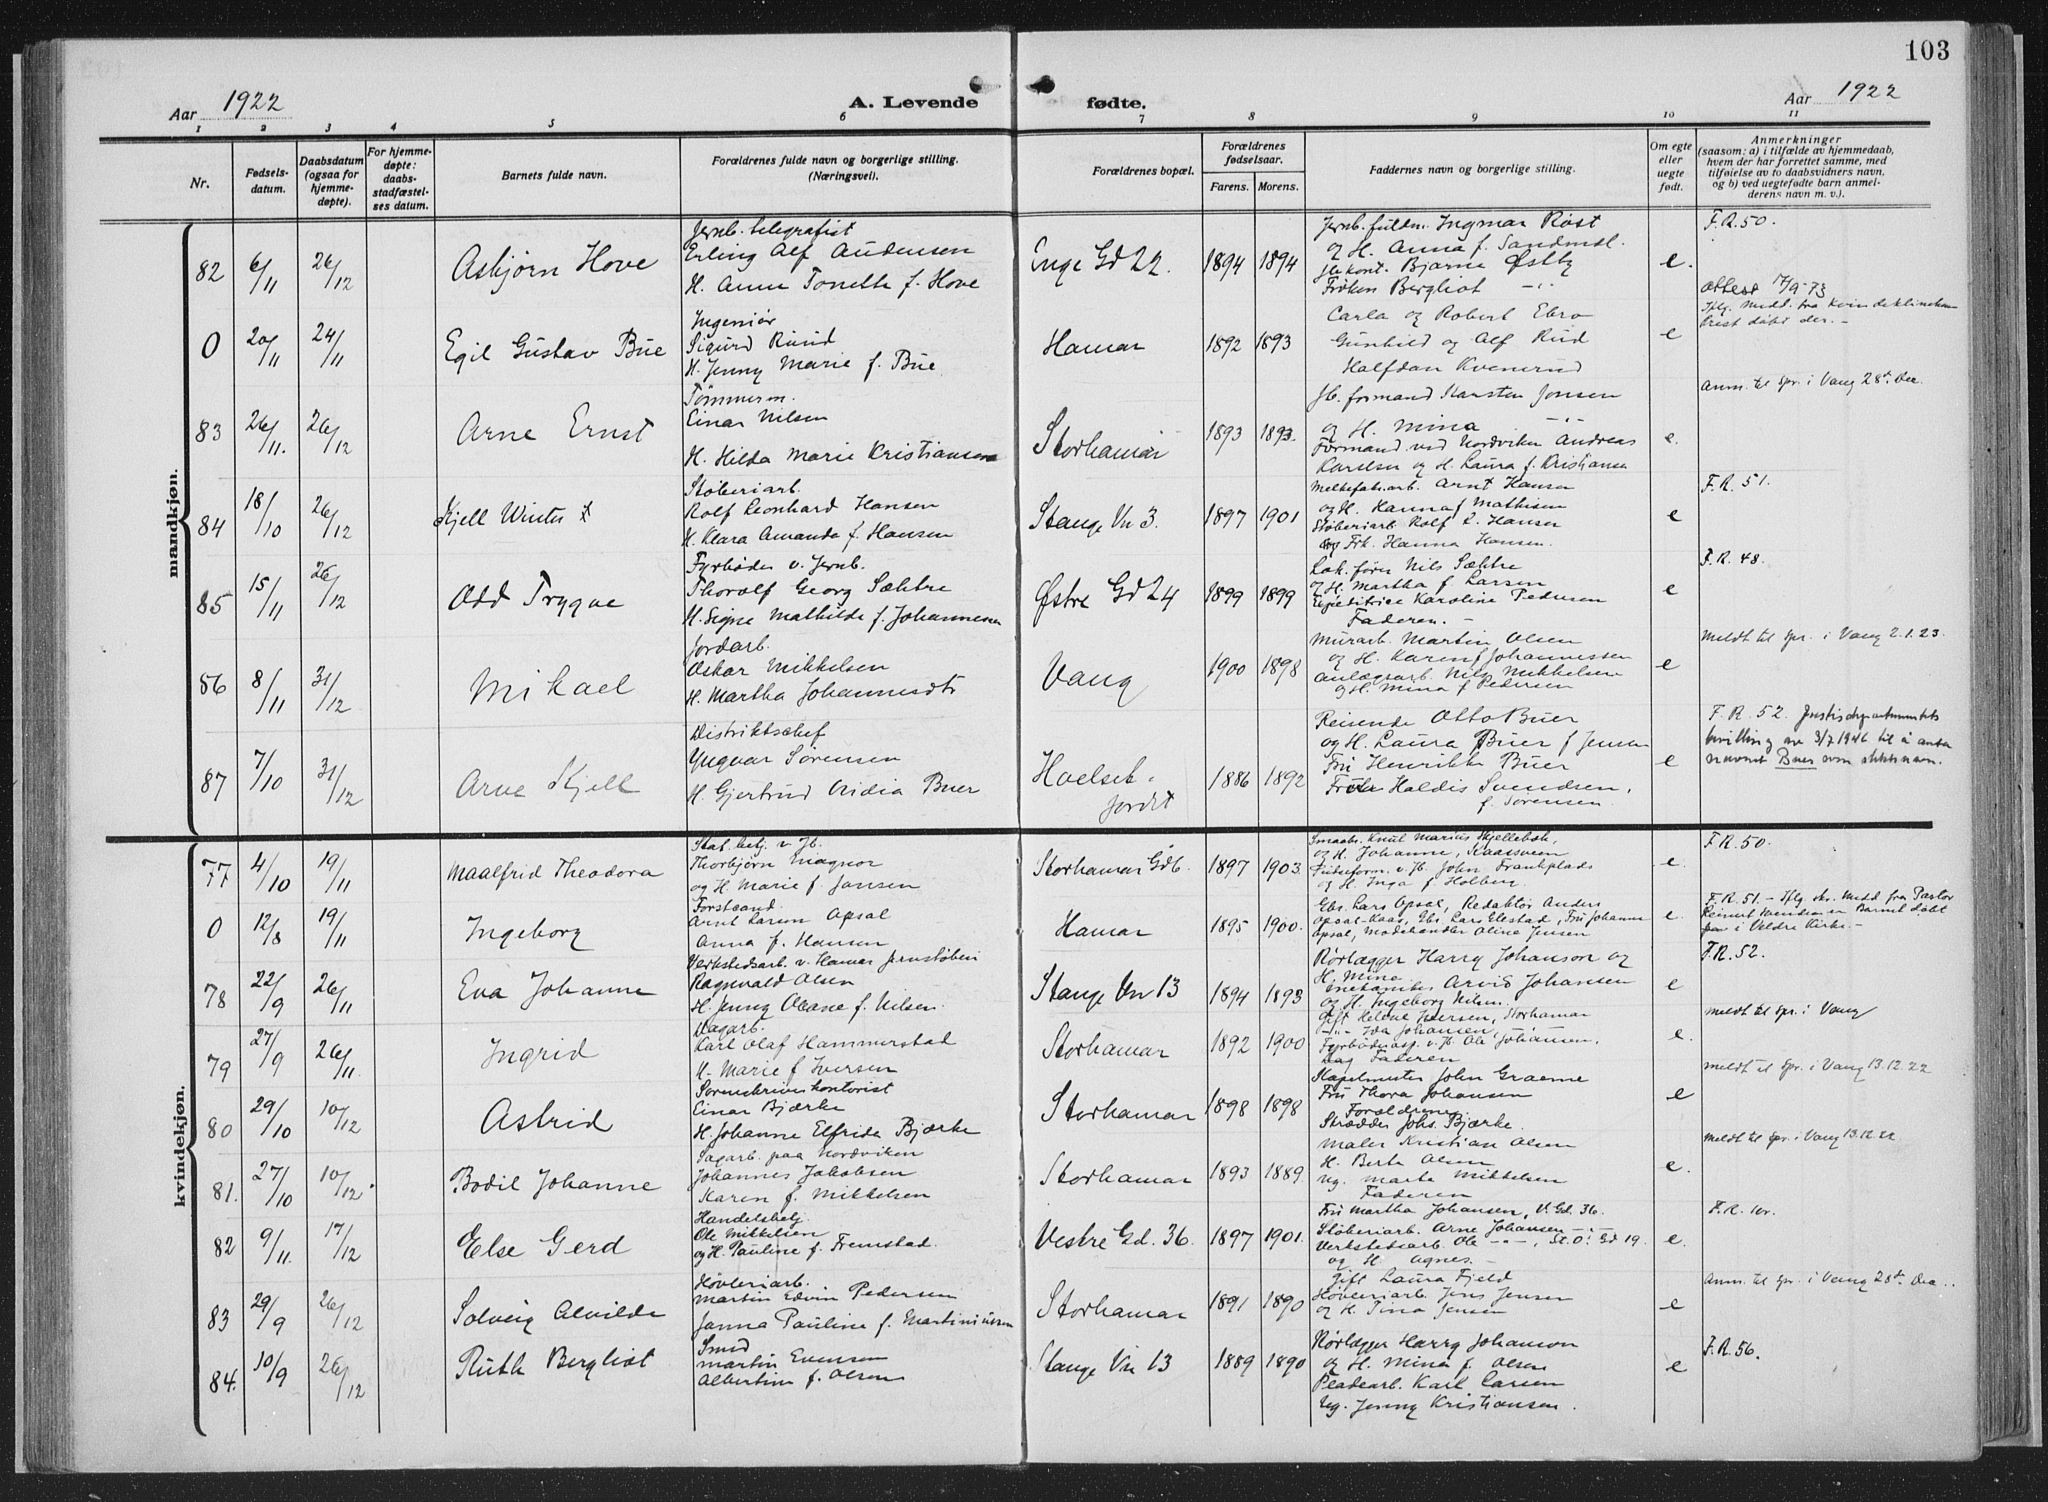 103
Aar 1922
A. Levende fødte.
Aar 1922
1 2 3 4 5 6 7 8 9 10 11
Nr.
Fødsels-
datum.
Daabsdatum
(ogsaa for
hjemme-
døpte).
For hjemme-
døpte:
daabs-
stadfæstel-
ses datum.
Barnets fulde navn.
Forældrenes fulde navn og borgerlige stilling.
(Næringsvei).
Forældrenes bopæl.
Forældrenes
fødselsaar.
Farens. Morens.
Faddernes navn og borgerlige stilling.
Om egte
eller
uegte
født.
Anmerkninger
(saasom: a) i tilfælde av hjemmedaab,
hvem der har forrettet samme, med
tilføielse av to daabsvidners navn,
og b) ved uegtefødte barn anmel-
derens navn m. v.).
mandkjøn.
82 6/11 26/12 Asbjørn Hove
Jernb. telegrafist
Erling Alf Audensen
H. Anna Tonette f. Hove
Enge Gd 22. 1894 1894
Jernb. fuldm. Ingmar Røst
og H. Anna f. Sandmsl.
Bjarne Østby
Frøken Bergliot -"-
e.
F.R. 50.
0 20/11 24/11 Egil Gustav Bue
Ingeniør
Sigurd Ruud
H. Jenny Marie f. Bue
Hamar 1892 1893
Carla og Robert Ebro
Gunhild og Alf Ruud
Halfdan Kvenerud
e
Attest 14/9-73
Iflg. medd. fra Kvindeklinikken
prest døbt der. -
83 26/11. 26/12 Arne Ernst
Tømmerm.
Einar Nilsen
H. Hilda Marie Kristiansen
Storhamar 1893 1893.
Jb. formand Karsten Jonsen
og H. Mina -"-
Formand ved Nordviken Andreas
Karlsen og H. Laura f. Kristiansen
e.
Anm. til spr. i Vang 28de Dec.
84 18/10 26/12 Kjell Winter
Støberiarb.
Rolf Leonhard Hansen
H. Klara Amanda f. Hansen
Stange Vn 3. 1897 1901
Melkefab.arb. Arnt Hansen
og H. Hanna f Mathisen
Støberiarb Rolf L. Hansen
og Frk. Hanna Hansen.
e
F.R. 51.
85 15/11 26/12 Odd Trygve
Fyrbøder v. Jernb.
Thoralf Georg Sæhtre
H. Signe Mathilde f. Johannesen
Østre Gd 24 1899 1899
Lok. fører Nils Sæhtre
og H. Martha f. Larsen
Karoline Pedersen
Faderen. -
e
F.R. 48.
86 8/11 31/12 Mikael
Jordarb.
Oskar Mikkelsen
H. Martha Johannesdt.
Vang 1900 1898
Murarb. Martin Olsen
og H. Karen f Johannessen
Anlægsarb Nils Mikkelsen
og H. Mina f Pedersen
e
Meldt til spr. i Vang 2.1.23.
87 7/10 31/12 Arne Kjell
Distriktschef
Yngvar Sørensen
H. Gjertrud Vidia Buer
Hoelset-
jordet
1886 1892
Reisende Otto Buer
og H. Laura Buer f Jensen
Fru Henrikke Buer
Fru Haldis Svendsen,
f. Sørensen.
e
F.R. 52. Justisdepartementets
bevilling av 3/7 1946 til å anta
navnet Buer som slektsnavn.
kvindekjøn.
77 4/10 19/11 Maalfrid Theodora
Stat.betj. v Jb.
Thorbjørn Enagnor
og H Marie f. Jansen
Storhamar Gd 6. 1897 1903.
Smaabr. Knut Marius Skjellebæk,
og H. Johanne, Kaassveen
v. Jb. John Frankplads
og H. Inga f Holberg.
e.
F.R. 50.
0 12/8 19/11 Ingeborg
Forstkand.
Arnt Larsen Opsal
Anna f. Hansen
Hamar 1895 1900.
Gbr. Lars Opsal, Redaktør Anders
Opsal-Kaas, Gbr. Lars Elestad, Fru Johanne
Opsal, Modehandler Oline Jensen
e.
F.R. 51. - Iflg. skr. medd fra Pastor
er Barnet døbt
i Veldre Kirke. -
78 22/9 26/11 Eva Johanne
Verkstedsarb. v. Hamar Jernstøberi
Ragnvald Olsen
H. Jenny Oleane f. Nilsen.
Stange Vn 13 1894 1893
Rørlægger Harry Johanson og
H. Mina
Arvid Johansen
og H. Ingeborg Nilsen.
e
F.R. 52.
79 27/9 26/11. Ingrid
Dagarb.
Karl Olaf Hammerstad
H. Marie f Iversen
Storhamar 1892 1900
Gift Helene Iversen, Storhamar
-"- Ida Johansen,
Fyrbøderasp. v. Jb Ole Johansen,
Dag Faderen
e.
Meldt til spr. i Vang
80 29/10 10/12 Astrid
Sorenskriver kontorist
Einar Bjærke
H. Johanne Elfrida Bjærke
Storhamar 1898 1898
Kapelmester John Graeme
Fru Thora Johansen
Forældrene.
Skrædder Johs. Bjærke.
e
Meldt til spr. i Vang 13.12.22
81. 27/10 10/12. Bodil Johanne
Sagarb. paa Nordviken
Johannes Jakobsen
Karen f. Mikkelsen
Storhamar 1893 1889.
Maler Kristian Olsen
H. Berte Olsen
Ug. Marte Mikkelsen
Faderen
e.
Meldt til spr. i Vang 13.12.22
82 9/11. 17/12 Else Gerd
Handelsbetj.
Ole Mikkelsen
og H. Pauline f. Fremstad.
Vestre Gd. 36. 1897 1901.
Fru Martha Johansen, V. Gd. 36.
Støberiarb. Arne Johansen -"-
Verkstedsarb. Ole -"-, St.O. Gd 19.
og H. Agnes. -
e.
F.R. 101.
83 29/9 26/12 Solveig Alvilde
Høvleriarb.
Martin Edvin Pedersen
Janna Pauline f. Martiniussen
Storhamar 1891 1890
Gift Laura Fjeld
Høvleriarb. Jens Jensen
og H. Tina Jensen
e
Anm. til spr. i Vang 28de Dec..
84. 10/9 26/12 Ruth Bergliot
Smed
Martin Evensen
Albertine f. Olsen
Stange Vn 13 1889 1890
Rørlægger Harry Johanson
og H. Mina f. Olsen
Pladearb. Karl Larsen
Ug. Jenny Kristiansen.
e
F.R. 56.